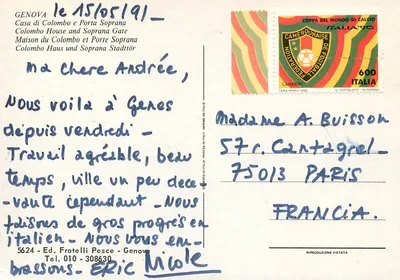 GENOVA le 15/05/91-
Casa di Colombo e Porta Soprana
Colombo House and Soprana Gate
Maison du Colombo et Porte Soprano
Colombo Haus und Soprana Stadttör
Ma chere Andrée,
Nous voilà à Genes
depuis vendredi -
Travail agréable, beau
temps, ville un peu dece-
vante cependant - Nous
faisons de gros progrès en
italien - Nous vous em-
brassons - ERIC Nicole
5624 - Ed. Fratelli Pesce - Genova
Tel. 010 - 308630
COPPA DEL MONDO DI CALCIO
ITALIA'90
CAMEROUNAISE
DE FOOTBALL
FEDERATION
CAMERUN
600
ITALIA
Madame A. Buisson
57 r. Cantagrel -
75013 PARIS
FRANCIA.
RIPRODUZIONE VIETATA